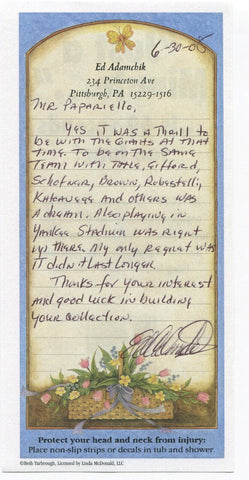 6-30-05
Ed Adamchik
234 Princeton Ave
Pittsburgh, PA 15229-1516
Mr Papariello,
Yes it was a thrill to
be with the Giants at that
time. To be on the same
team with Tittle, Gifford,
Schofner, Brown, Robestelli,
Katcavage and others was
a dream. Also playing in
Yankee Stadium was right
up there. My only regret was
it didn't last longer.
Thanks for your interest
and good luck in building
your collection.
Ed Adamchik
Protect your head and neck from injury:
Place non-slip strips or decals in tub and shower.
©Beth Yarbrough, Licensed by Linda McDonald, LLC